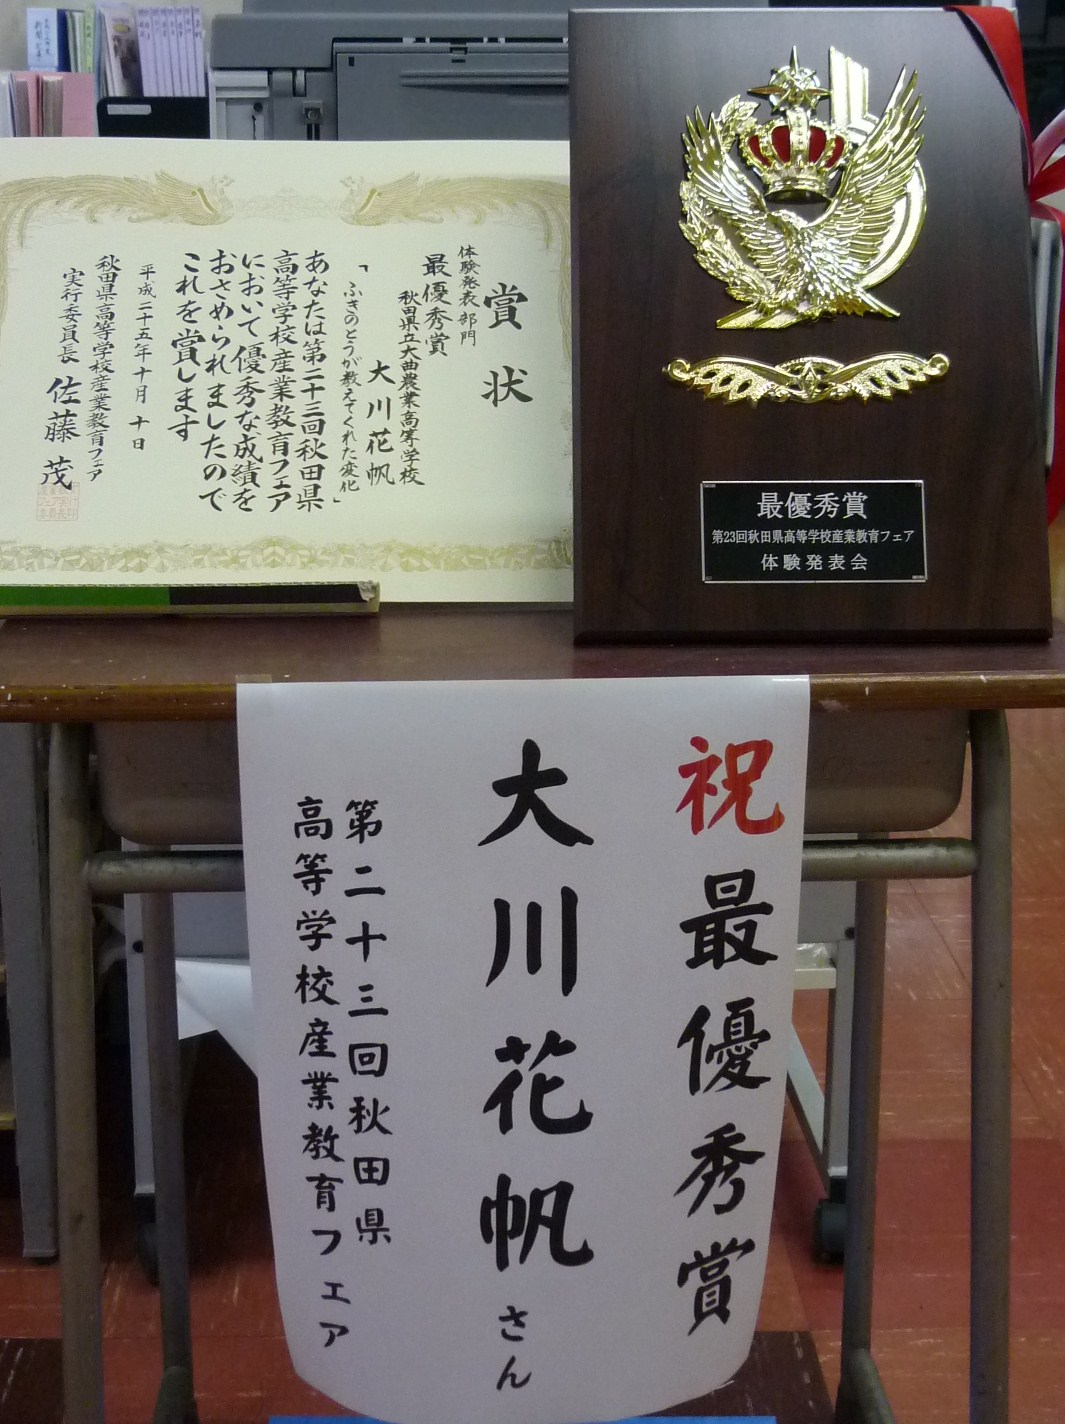 賞状
体験発表部門
最優秀賞
秋田県立大曲農業高等学校
大川花帆
「ふきのとうが教えてくれた変化」
あなたは第二十三回秋田県
高等学校産業教育フェア
において優秀な成績を
おさめられましたので
これを賞します
平成二十五年十月十日
秋田県高等学校産業教育フェア
実行委員長 佐藤茂
最優秀賞
第23回秋田県高等学校産業教育フェア
体験発表会
祝最優秀賞
大川花帆さん
第二十三回秋田県
高等学校産業教育フェア